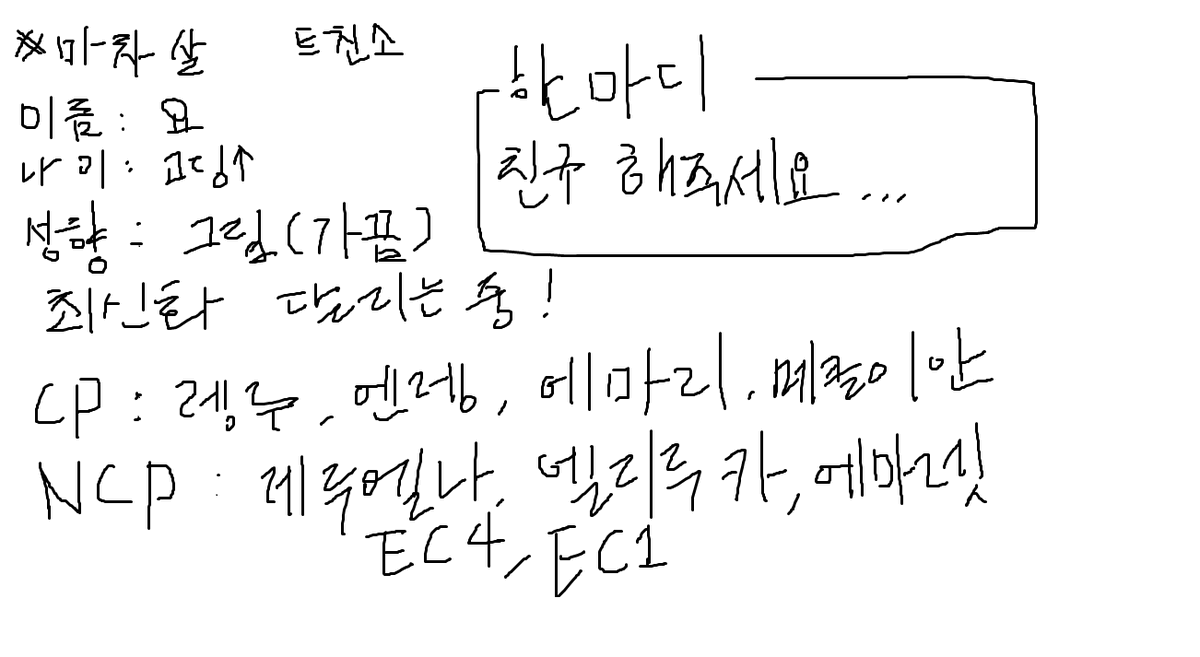 ※마차살 트친소
이름 : 요
나이 : 고딩↑
성향 : 그림(가끔)
최신화 달리는 중!
한마디
친구 해주세요...
CP : 렝루, 엔렝, 에마리, 메콜이안
NCP : 레루엘나, 엘리루카, 에마릿
EC4, EC1